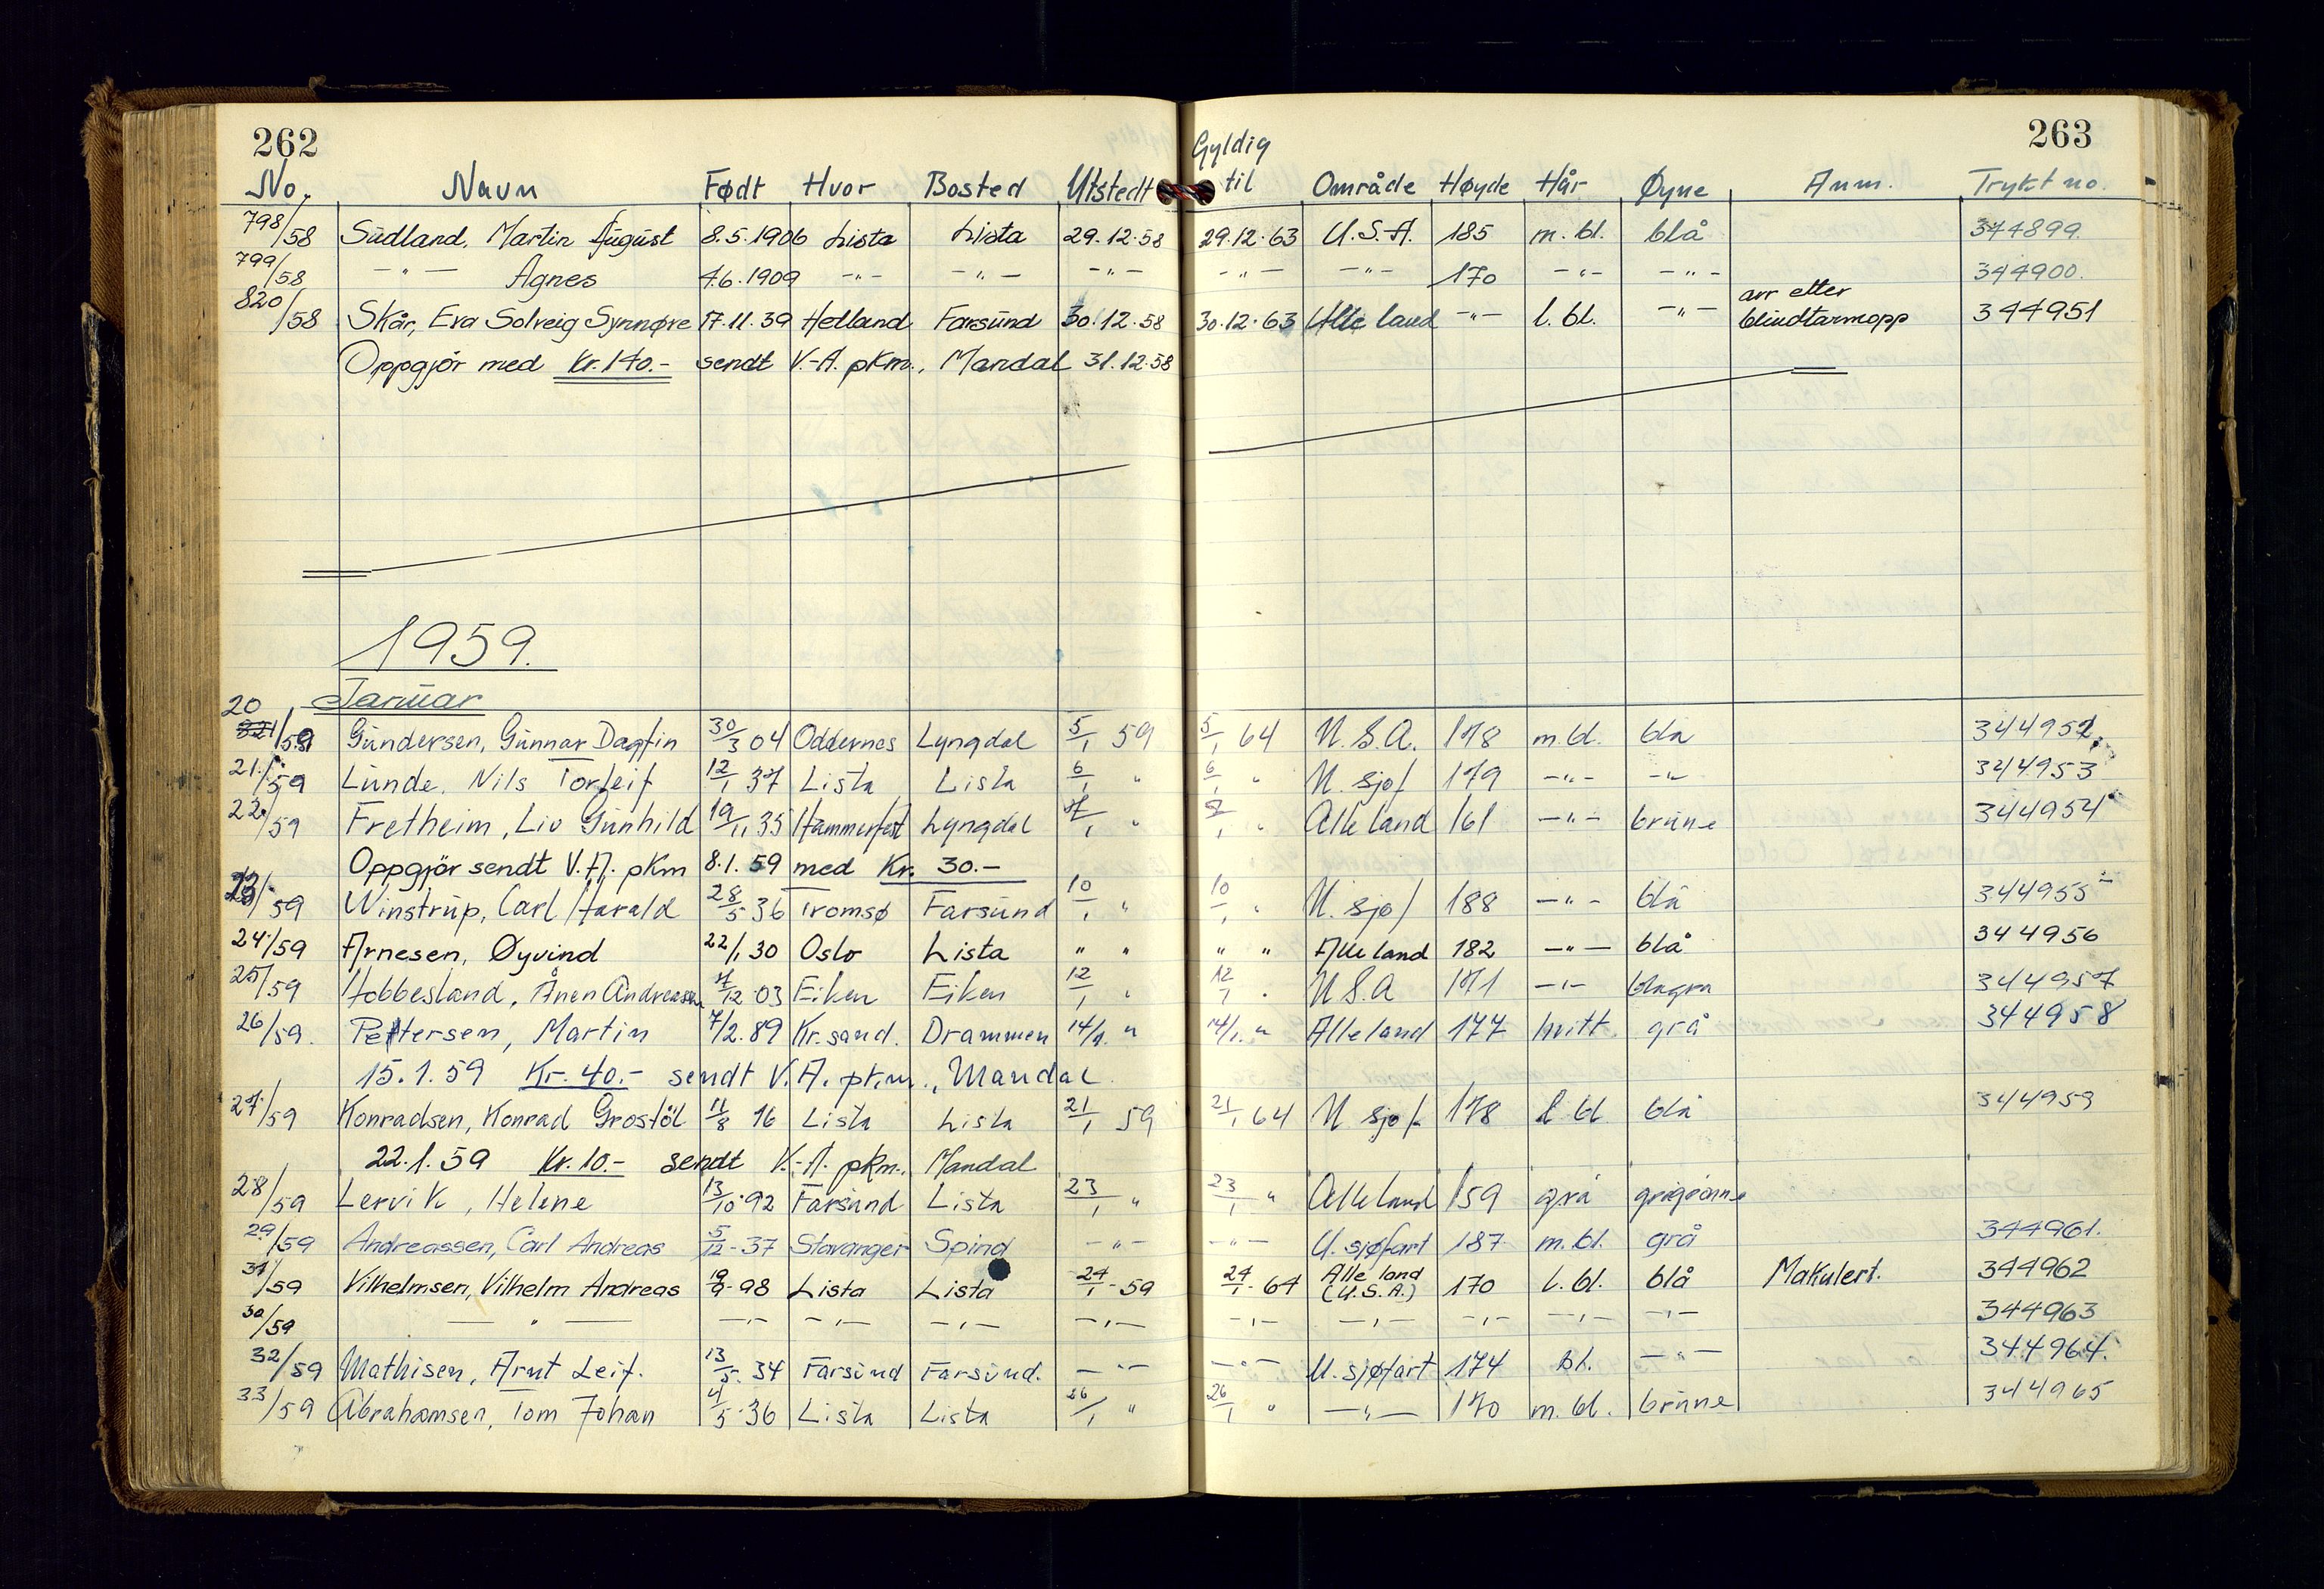 262
263
No. Navn Født Hvor Bosted Utstedt Gyldig til Område Høyde Hår Øyne Anm. Trykt no.
798/58 Sudland, Martin August 8.5.1906 Lista Lista 29.12.58 29.12.63 U.S.A. 185 m. bl. blå 344899.
799/58 -"- Agnes 4.6.1909 -"- -"- -"- -"- -"- 170 -"- -"- 344900.
820/58 Skår, Eva Solveig Synnøve 17.11.39 Helland Farsund 30.12.58 30.12.63 Alle land -"- l. bl. -"- arr etter blindtarmopp 344951
Oppgjør med Kr. 140.- sendt V.-A. pkm., Mandal 31.12.58
1959.
Januar
20/59 Gundersen, Gunnar Dagfin 30/3 04 Oddernes Lyngdal 5/1 59 5/1 64 U.S.A. 178 m. bl. blå 344952
21/59 Lunde, Nils Torleif 12/1 37 Lista Lista 6/1 " 6/1 " U. sjøf 179 -"- -"- 344953
22/59 Fretheim, Liv Gunhild 19/11 35 Hammerfest Lyngdal 7/1 " 7/1 " Alle land 161 -"- brune 344954
Oppgjør sendt V.A. pkm 8.1.59 med Kr. 30.-
23/59 Winstrup, Carl Harald 28/5 36 Tromsø Farsund 10/1 " 10/1 " U. sjøf 188 -"- blå 344955
24/59 Arnesen, Øyvind 22/1 30 Oslo Lista " " " " Alle land 182 -"- blå 344956
25/59 Hobbesland, Ånen Andreassen 7/12 03 Eiken Eiken 12/1 " 12/1 " U.S.A 171 -"- blågrå 344957
26/59. Pettersen, Martin 7/2.89 Kr.sand. Drammen 14/1. " 14/1. " Alle land 177 hvitt. grå 344958
15.1.59 Kr. 40.- sendt V.A. pkm., Mandal
27/59 Konradsen, Konrad Grostøl 11/8 16 Lista Lista 21/1 59 21/1 64 U sjøf. 178 l. bl. blå 344959
22.1.59 Kr. 10.- sendt V.-A. pkm., Mandal
28/59 Lervik, Helene 13/10 92 Farsund Lista 23/1 " 23/1 " Alle land 159 grå grågrønne
29/59 Andreassen, Carl Andreas 5/12-37 Stavanger Spind -"- -"- U. sjøfart 187 m. bl. grå 344961.
31/59 Vilhelmsen, Vilhelm Andreas 19/9-98 Lista Lista 24/1-59 24/1-64 Alle land (U.S.A.) 170 l. bl. blå Makulert. 344962
30/59 -"- -"- -"- -"- -"- -"- -"- -"- -"- -"- 344963
32/59 Mathisen, Arnt Leif. 13/5. 34 Farsund Farsund. -"- -"- U. sjøfart 174 bl. -"- 344964.
33/59 Abrahamsen, Tom Johan 4/5.36 Lista Lista 26/1 " 26/1 " -"- 170 m. bl. brune 344965